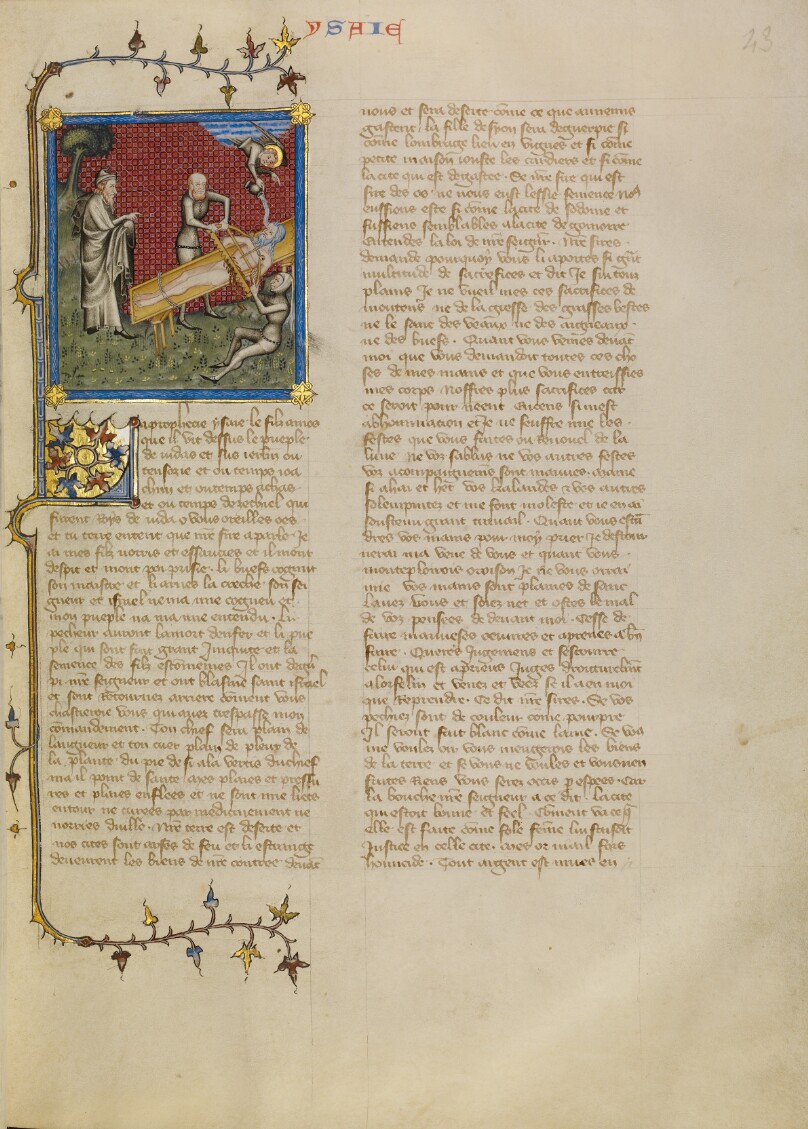 YSAIE
23
La prophecie ysaie le filz amos
que il vit dessus le pueple
de iudas et sus ierlm ou
temps ozie et ou temps ioa
chim et ou temps achas
et ou temps dezechiel qui
furent roys de iuda o vous oreilles oes
et tu terre entent que nre sire a parle Je
ai mes filz norris et essauciez et il mont
despit et mont poi prisie. li buefs cognut
son maistre et li asnes la creche son sei
gneur et israel ne ma mie cogneu et
mon pueple na ma mie entendu. Li
pecheur auront la mort denfer et li pue
ple qui sont fait grant Iniquite et la
semence des filz Il ont
pi nre seigneur et ont blasme saint israel
et sont Retournez arriere coment vous
chastieroie vous qui auez trespasse mon
comandement. Ton chief sera plain de
langueur et ton cuer plain de pleur de
la plante du pie de si a la vertis du chief
na il point de sante. mes plaies et
res et plaies enflees et ne sont mie liees
entour ne curees par medicinement ne
norries duille. Nre terre est deserte et
nos cites sont arses de feu et li estrange
deueurent les biens de nre contree deuat
nous et sera deserte come ce que annemis
gastent. la fille de syon sera deguerpie si
come lombrage lieu en vignes et si come
petite maison iouste les et si come
la cite qui est degastee. Se nre sire qui est
sire des os ne nous eust lessie semence nos
eussions este si come la cite de sodome et
fussions semblables a la cite de gomorre
Entendes la loi de nre seigneur. Nre sires
demande pourquoy vous li aportes si grat
multitude de sacrefices et dit Je sui tout
plains Je ne vueil mes ces sacrefices de
moutons ne de la gresse des grasses bestes
ne le sanc des veaux ne des aigneaux
ne des buefs. Quant vous venes deuat
moi que vous demandoit toutes ces cho
ses de mes mains et que vous entrissies
mes corps Noffres plus sacrefices car
ce seroit pour neent Encens si mest
abhominacion et Je ne seuffre mie les
festes que vous faites ou Renouel de la
lune ne voz sablus ne vos autres festes
voz acompaignemens sont mauues. Mame
si a hai et het vos Kalandes et vos autres
sollempnitez et me sont moleste et ie en ai
soustenu grant trauail. Quant vous esta
dres vos mains pour moy prier Je destour
nerai ma veue de vous et quant vous
monteplieres oroison Je ne vous orrai
mie vos mains sont plaines de sanc
Lauez vous et soiez net et ostes le mal
de voz pensees de deuant moi. Cesse de
faire mauueses oeuures et aprenes a bn
faire. Queres Jugemens et secourre
celui qui est apriens Juges droiturelmt
a lorfelin et venez et veez se il a en moi
que Reprendre. Ce dit nre sires. Se vos
pechez sont de couleur come pourpre
Il seront fait blanc come laine. Se vos
me voules oir vous mengerois les biens
de la terre et se vous ne voules et vous nen
faites Riens vous seres occis p espees. Car
la bouche nre seigneur a ce dit. La cite
qui estoit bonne et feel. Coment va ce q
elle est faite come fole feme
Justice en celle cite. mes or mail font
homicide. Tout argent est mues en